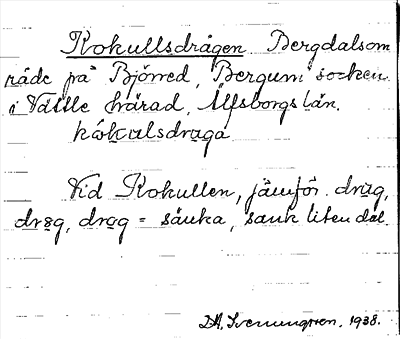 Kokullsdrågen Bergdalsom
råde på Björred, Bergum socken
i Vättle härad, Älfsborgs län.
kókulsdraga
Vid Kokullen, jämför drug,
drog, drag = sänka, sank liten dal.
D.A. Svenungsson. 1938.